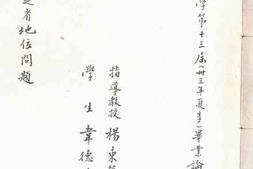 學第十三屆(卅三年夏季)畢業論
指導教授 楊東
學生 韋德
之省地位問題